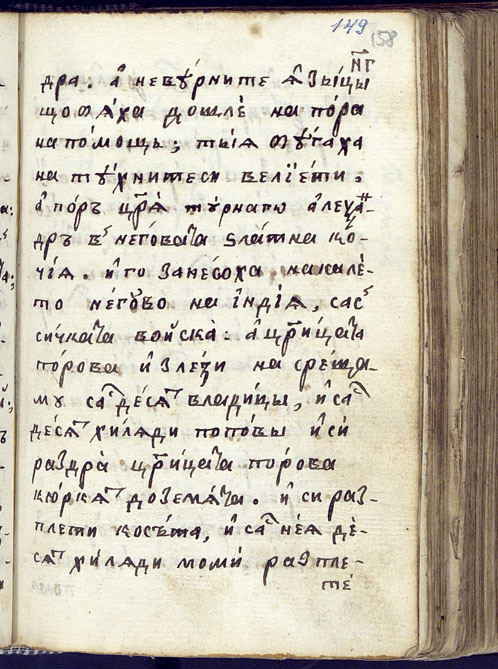 149
158
н҃г
дра. а҆ невѣ́рните ꙗ҆зы́цы
що ѿѧ́ха дошлѐ на по́ра
на по́мощь; тыѧ ѿбѣ́гаха
на тꙋ́хните си велїе́ти.
а҆ по́ръ цр҃ѧ̀ тꙋрнаго а҆леѯа́-
дръ въ не́говата ѕла́тна ко-
чїѧ. и҆ го зане́соха. на кале́-
то не́гово на и҆ндїѧ, сасъ
си́чката войска̀: а҆ цр҃и́цата
по́рова и҆зле́зи на сре́ща-
мꙋ са де́сѧт влади́цы, и҆ са
де́сѧт хи́лѧди попо́вы и҆ си
раздра̀ цр҃и́цата по́рова
кю́ркѧт до земѧ́та. и҆ си раз-
плети косы́те, и҆ са не́ѧ де́-
сѧт хи́лѧди моми́ разпле-
те́